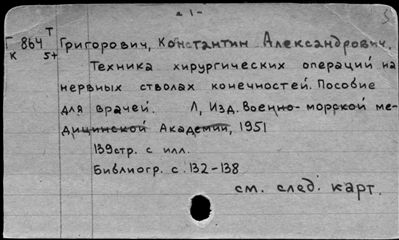 - 1 -
Г 864 Т Григорович, Константин Александрович.
К 5+
Техника хирургических операций на
нервных стволах конечностей. Пособие
для врачей. Л, Изд. Военно-морской ме-
дицинской Академии, 1951
139стр. с илл.
Библиогр. с. 132-138
см. след. карт.